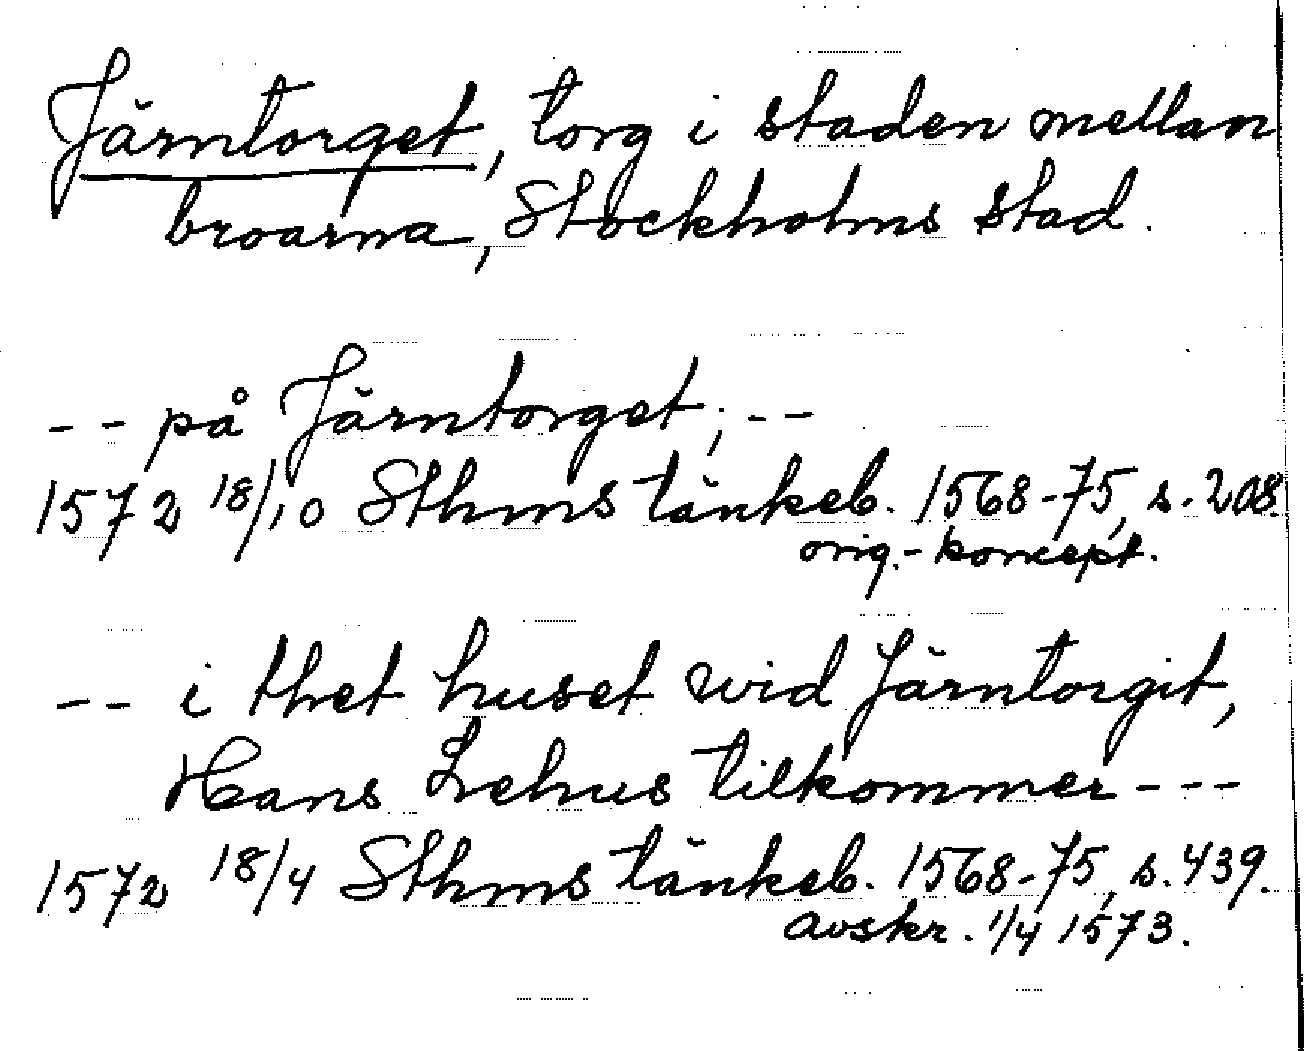 Järntorget, torg i staden mellan
broarna, Stockholms stad.
-- på Järntorget, --
1572 18/10 Sthms tänkeb. 1568-75, s. 208.
orig.-koncept.
-- i thet huset wid Järntorgit,
Hans Lehus tilkommer ---
1572 18/4 Sthms tänkeb. 1568-75, s. 439.
avskr. 1/4 1573.